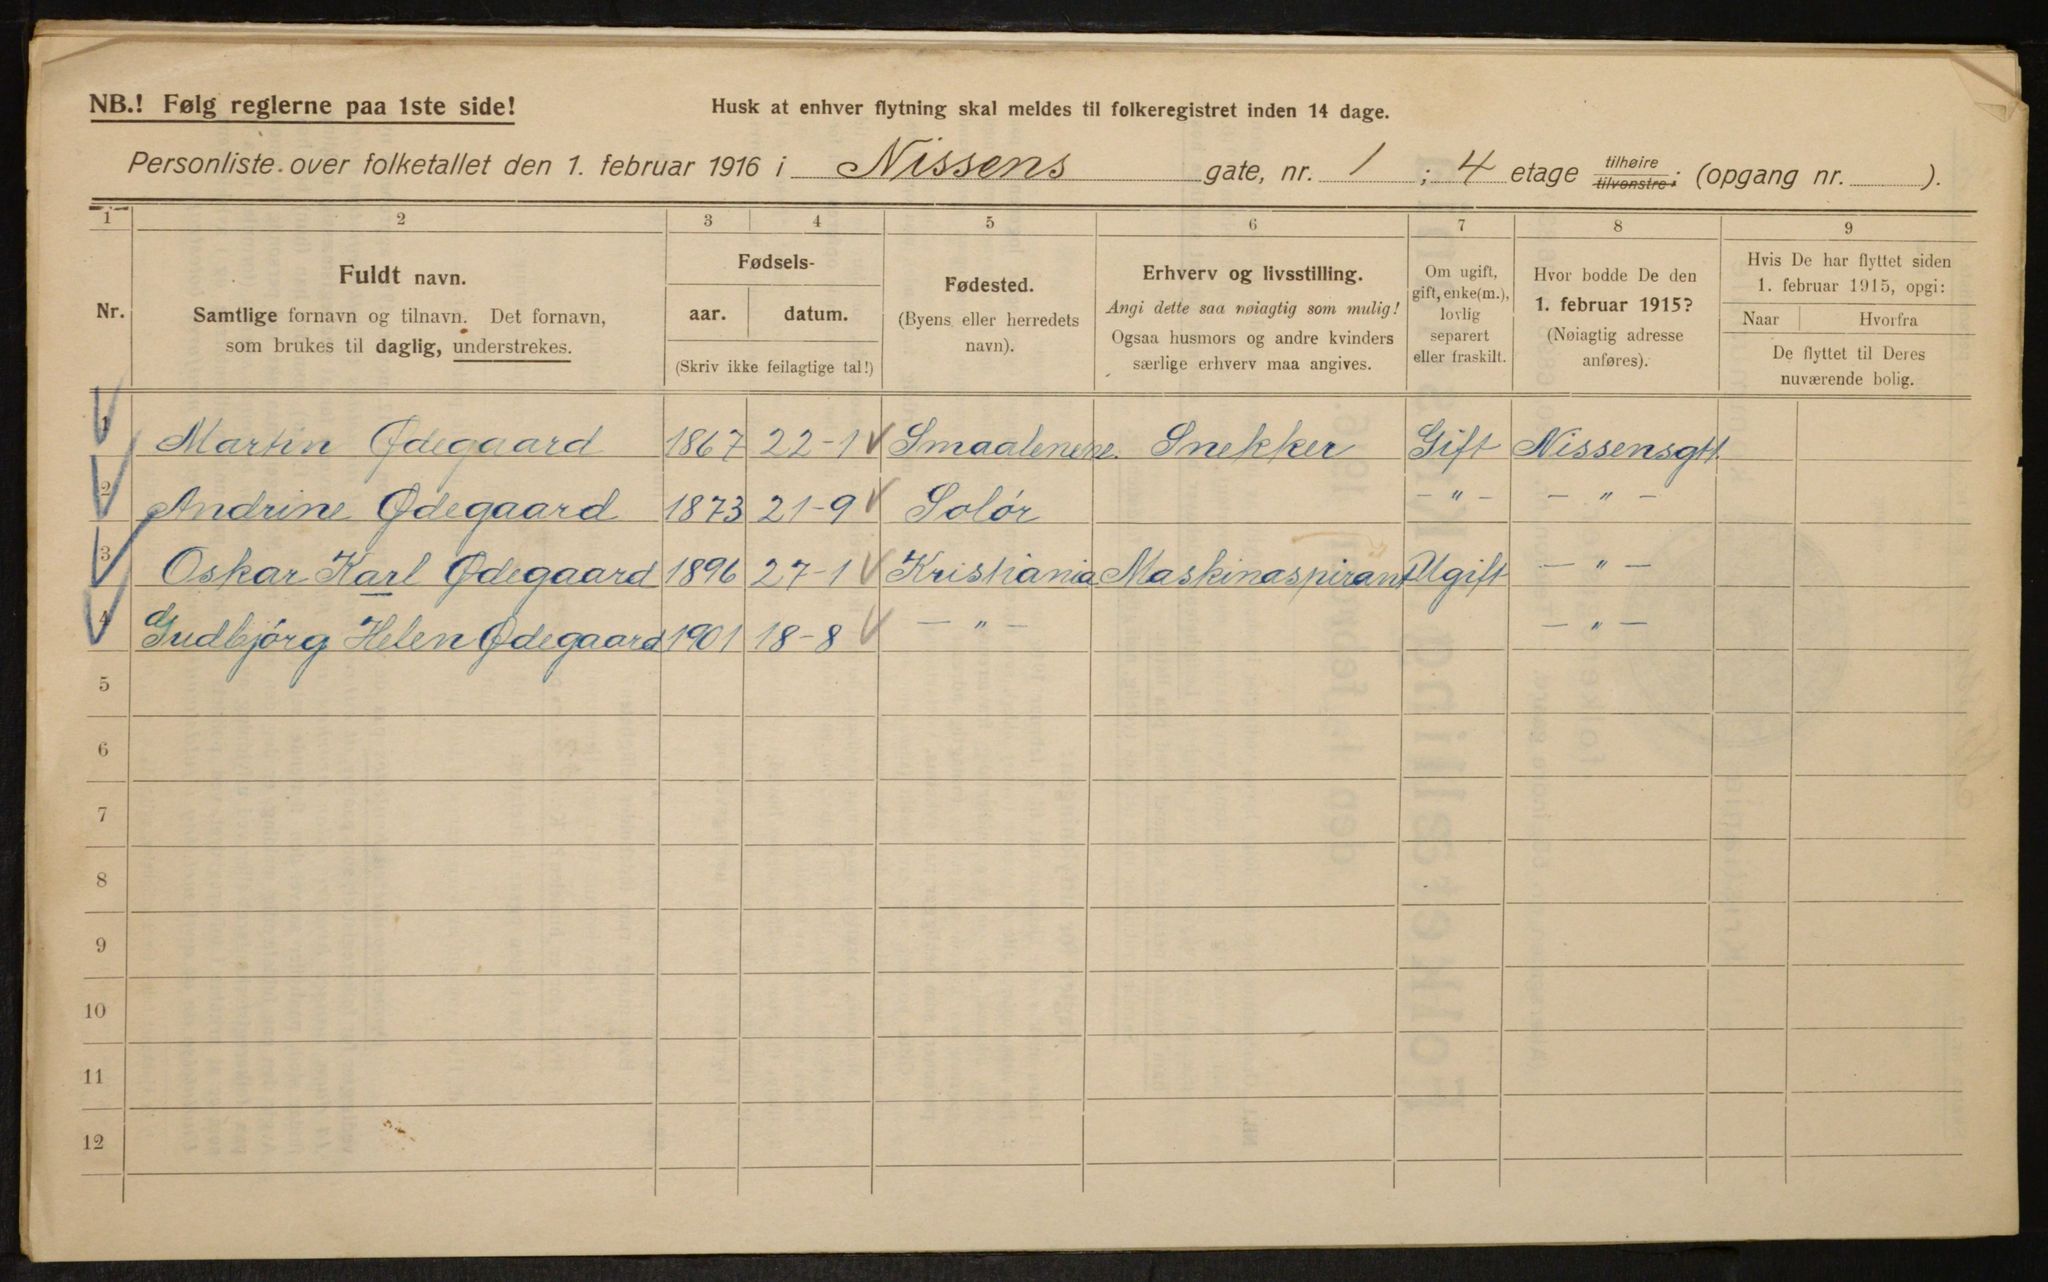 NB.! Følg reglerne paa 1ste side!
Husk at enhver flytning skal meldes til folkeregistret inden 14 dage.
Personliste over folketallet den 1. februar 1916 i Nissens gate, nr. 1 ; 4 etage tilhøire tilvenstre; (opgang nr. ).
1 2 3 4 5 6 7 8 9
Nr.
Fuldt navn.
Samtlige fornavn og tilnavn. Det fornavn,
som brukes til daglig, understrekes.
Fødsels-
aar. datum.
(Skriv ikke feilagtige tal!)
Fødested.
(Byens eller herredets
navn).
Erhverv og livsstilling.
Angi dette saa nøiagtig som mulig!
Ogsaa husmors og andre kvinders
særlige erhverv maa angives.
Om ugift,
gift, enke(m.),
lovlig
separert
eller fraskilt.
Hvor bodde De den
1. februar 1915?
(Nøiagtig adresse
anføres).
Hvis De har flyttet siden
1. februar 1915, opgi:
Naar Hvorfra
De flyttet til Deres
nuværende bolig.
1 Martin Ødegaard 1867 22-1 Smaalenene Snekker Gift Nissensgt 1.
2 Andrine Ødegaard 1873 21-9 Solør - " - - " -
3 Oskar Karl Ødegaard 1896 27-1 Kristiania Maskinaspirant Ugift - " -
4 Gudbjørg Helen Ødegaard 1901 18-8 - " - - " -
5
6
7
8
9
10
11
12